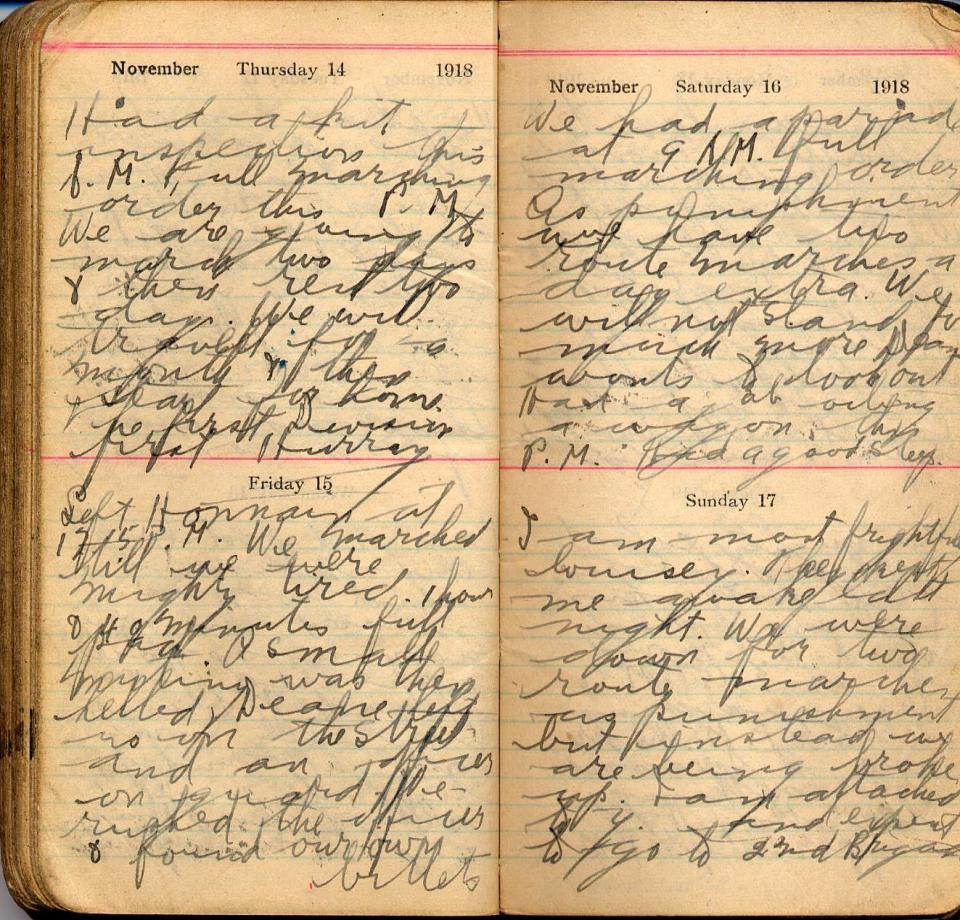 November Thursday 14 1918
Had a kit
inspection this
A.M. Full marching
order this P.M.
We are going to
march two days
& then rest two
day. We will
travel for a
month & then
start for home.
The First Division
first Hurray
Friday 15
Left Hornain at
M. We marched
till we were
mighty tired. 1 hour
& minutes full
pack. A small
was then
held. Deane left
us on the street
and an officer
on guard. We
rushed the officer
& found our own
billets
November Saturday 16 1918
We had a parade
at 9 A.M. Full
marching order
As punishment
we have two
route marches a
day extra. We
will not stand for
much more
& look out
Had a job oiling
a wagon this
P.M. Had a good sleep.
Sunday 17
I am most frightful
lousey. They kept
me awake last
night. We were
down for two
route marches
as punishment
but instead we
are being broke
up. I am attached
to Y. and expect
to go to 2nd Brigade